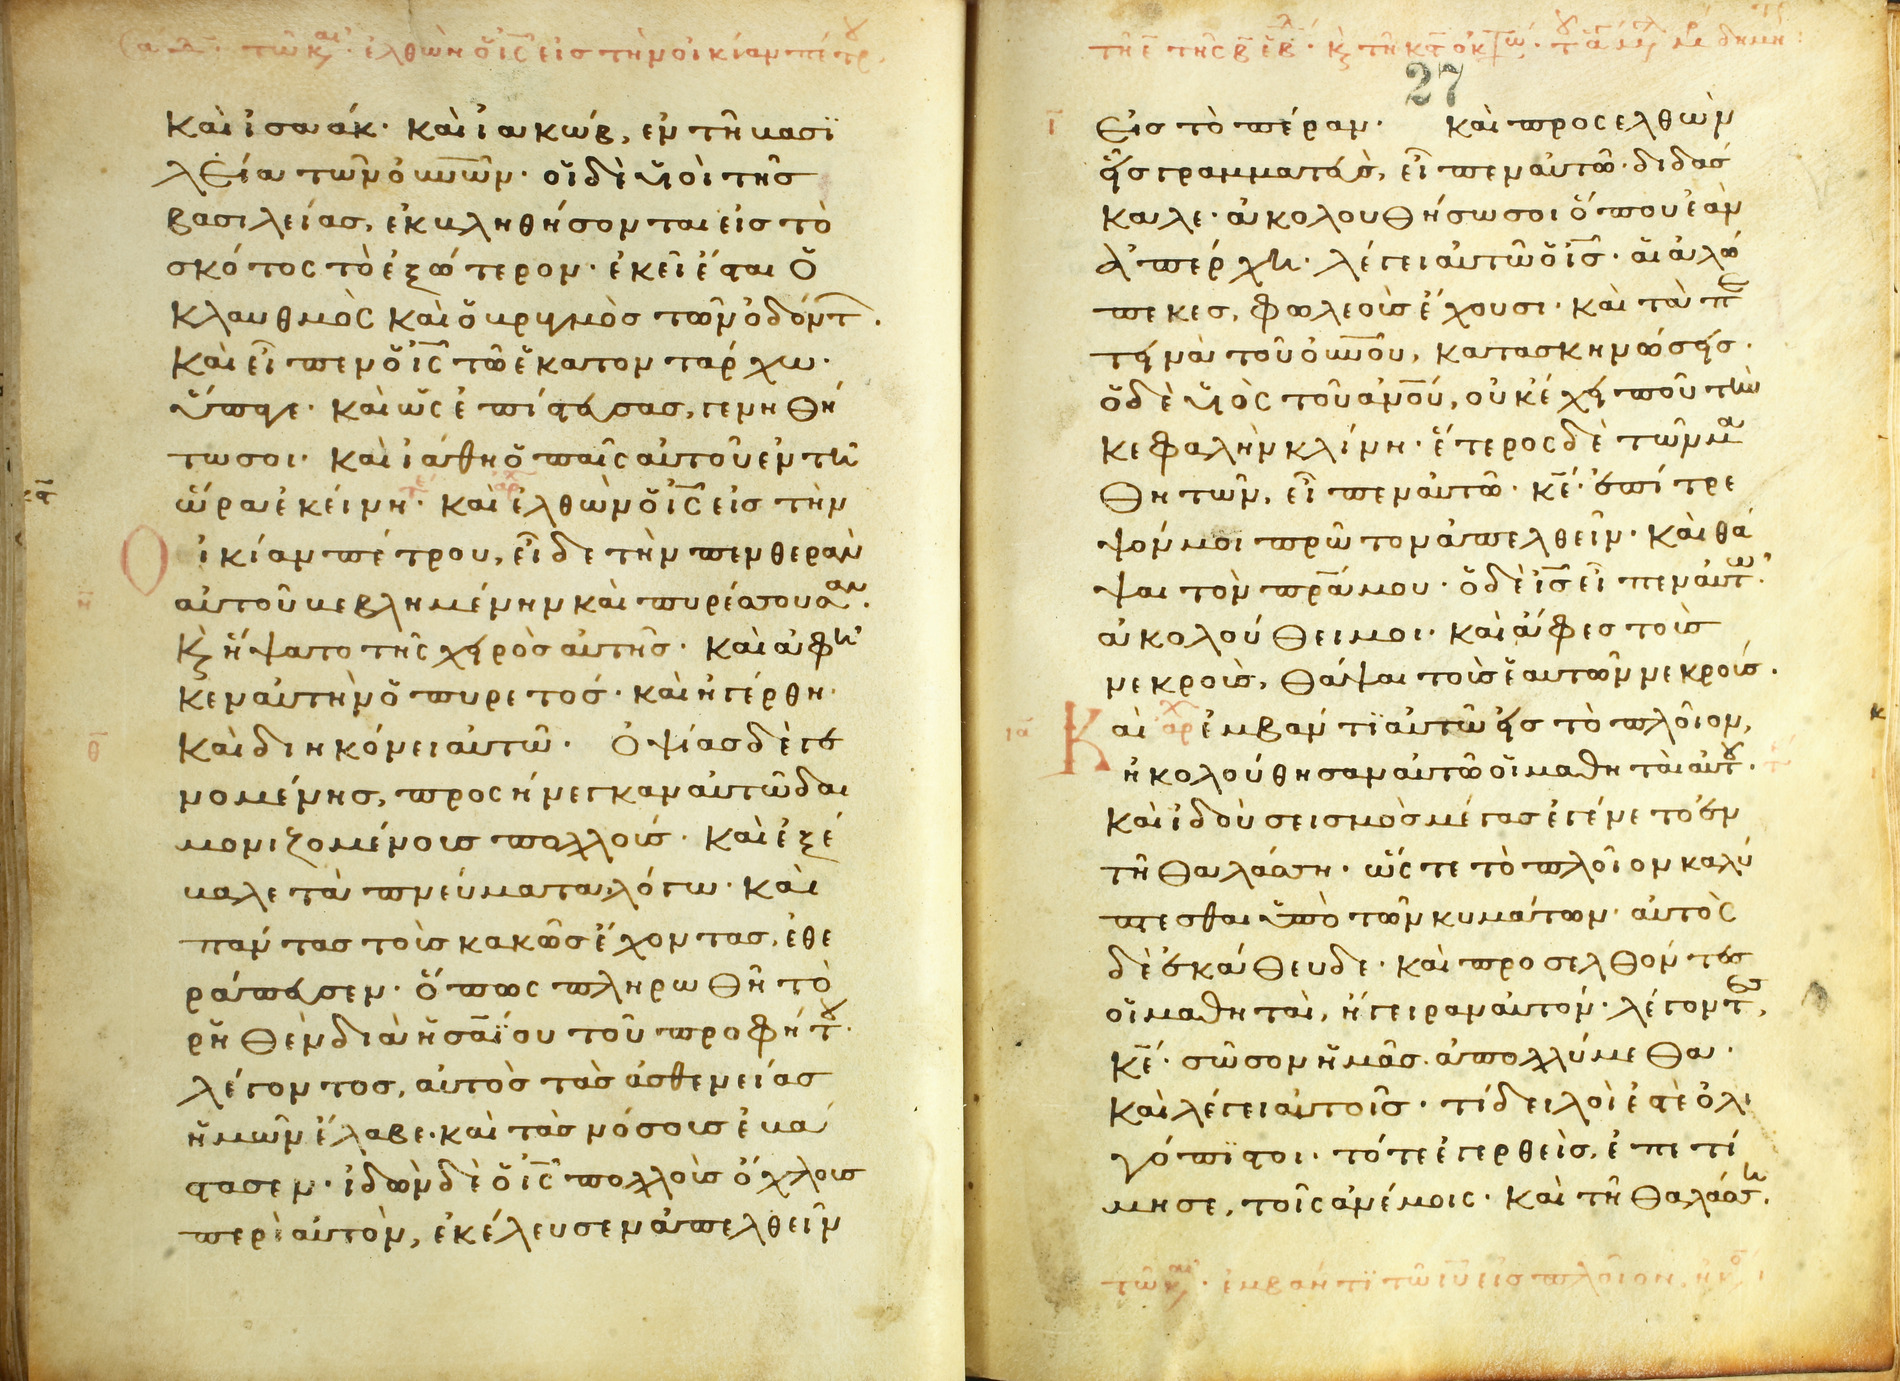 τῶ κ αι. ἐλθὼν ὁ ἰς εἰς τὴν οἰκίαν πέτρ
καὶ ἰσαάκ· καὶ ἰακώβ, ἐν τῆ βασϊ
λεία τῶν οὐνῶν· οἱ δὲ υἱοὶ τῆς
βασιλείας, ἐκβληθήσονται εἰς τὸ
σκότος τὸ ἐξώτερον· ἐκεῖ ἔσται ὁ
κλαυθμὸς καὶ ὁ βρυγμὸς τῶν ὀδόντ.
καὶ εἶπεν ὁ ἰς τῶ ἑκατοντάρχω·
ὕπαγε· καὶ ὡς ἐπίστευσας, γενηθή
τω σοι· καὶ ἰάθη ὁ παῖς αὐτοῦ ἐν τῆ
ὥρα ἐκείνη· καὶ ἐλθὼν ὁ ἰς εἰς τὴν
Οἰκίαν πέτρου, εἶδε τὴν πενθερὰν
αὐτοῦ βεβλημένην καὶ πυρέσσουσαν.
κ ἥψατο τῆς χειρὸς αὐτῆς· καὶ ἀφῆ
κεν αὐτὴν ὁ πυρετός· καὶ ἠγέρθη·
καὶ διηκόνει αὐτῶ· Ὀψίας δὲ γε
νομένης, προσήνεγκαν αὐτῶ δαι
μονιζομένους πολλούς· καὶ ἐξέ
βαλε τὰ πνεύματα λόγω· καὶ
πάντας τοὺς κακῶς ἔχοντας, ἐθε
ράπευσεν· ὅπως πληρωθῆ τὸ
ῥηθὲν διὰ ἡσαΐου τοῦ προφήτου·
λέγοντος, αὐτὸς τὰς ἀσθενείας
ἡμῶν ἔλαβε· καὶ τὰς νόσους ἐβά
στασεν· ἰδὼν δὲ ὁ ἰς πολλοὺς ὄχλους
περὶ αὐτὸν, ἐκέλευσεν ἀπελθεῖν
27
ῑ
εἰς τὸ πέραν· καὶ προσελθὼν
εἷς γραμματεὺς, εἶπεν αὐτῶ· διδάσ
καλε· ἀκολουθήσω σοι ὅπου ἐὰν
ἀπέρχη· λέγει αὐτῶ ὁ ἰς· αἱ ἀλώ
πεκες, φωλεοὺς ἔχουσι· καὶ τὰ πε
τεινὰ τοῦ οὐνοῦ, κατασκηνώσεις·
ὁ δὲ υἱὸς τοῦ ἀνοῦ, οὐκ ἔχει ποῦ τὴν
κεφαλὴν κλίνη· ἕτερος δὲ τῶν μα
θητῶν, εἶπεν αὐτῶ· κε· ἐπίτρε
ψόν μοι πρῶτον ἀπελθεῖν· καὶ θά
ψαι τὸν πρα μου· ὁ δὲ ις εἶπεν αὐτῶ·
ἀκολούθει μοι· καὶ ἄφες τοὺς
νεκροὺς, θάψαι τοὺς ἑαυτῶν νεκρούς·
ια
Καὶ ἐμβάντϊ αὐτῶ εἰς τὸ πλοῖον,
ἠκολούθησαν αὐτῶ οἱ μαθηταὶ αὐτοῦ·
καὶ ἰδοὺ σεισμὸς μέγας ἐγένετο ἐν
τῆ θαλάσση· ὥστε τὸ πλοῖον καλύ
πτεσθαι ὑπὸ τῶν κυμάτων· αὐτὸς
δὲ ἐκάθευδε· καὶ προσελθόντες
οἱ μαθηταὶ, ἤγειραν αὐτόν· λέγοντες,
κε· σῶσον ἡμᾶς. ἀπολλύμεθα·
καὶ λέγει αὐτοῖς· τί δειλοί ἐστὲ ὀλι
γόπϊστοι· τότε ἐγερθεὶς, ἐπετί
μησε, τοῖς ἀνέμοις· καὶ τῆ θαλάσση.
ἐμβάντϊ τῶ ιυ εἰς πλοῖον,